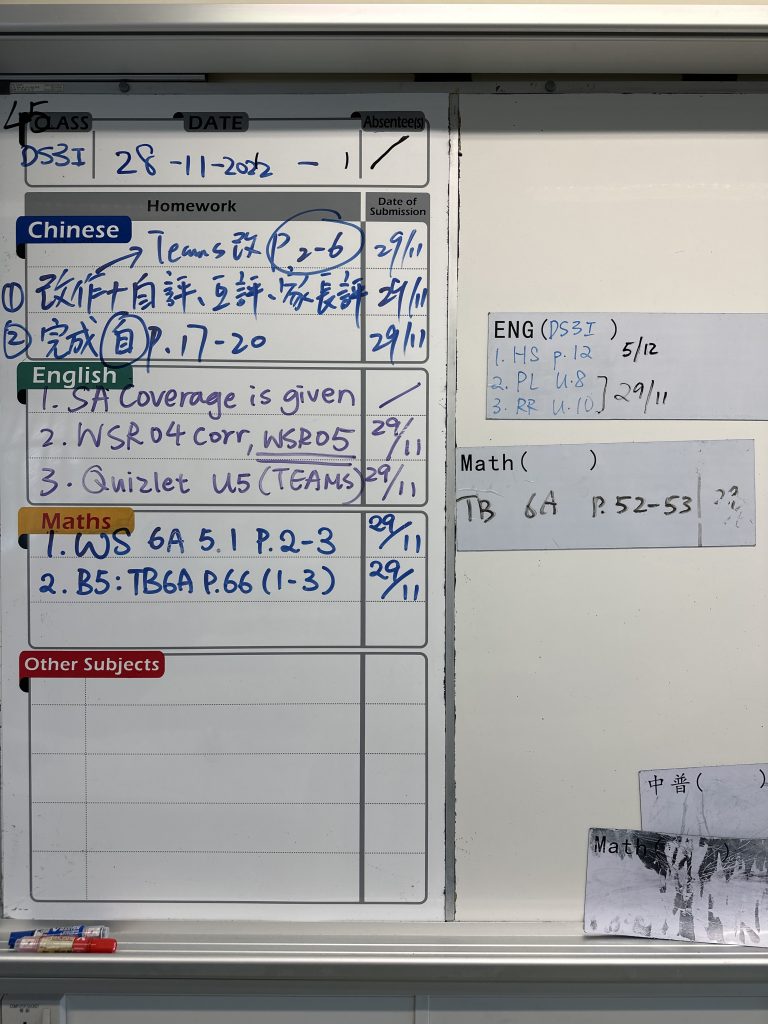 45
CLASS DATE Absentee(s)
DS3I 28-11-2022 - 1 /
Homework Date of Submission
Chinese
Teams改 P.2-6 29/11
① 改作+自評、互評、家長評 29/11
② 完成 自 P.17-20 29/11
English
1. SA Coverage is given /
2. WSR04 Corr, WSR05 29/11
3. Quizlet U5 (TEAMS) 29/11
Maths
1. WS 6A 5.1 P.2-3 29/11
2. B5: TB6A P.66 (1-3) 29/11
Other Subjects
ENG(DS3I )
1. HS p.12 5/12
2. PL U.8
3. RR U.10 29/11
Math( )
TB 6A P.52-53
中普( )
Math( )